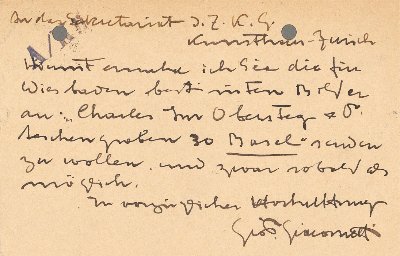 An das Sekretariat d. Z. K. G.
Kunsthaus - Zürich
Hiermit ersuche ich Sie die für
Wiesbaden bestimmten Bilder
an: "Charles Im Obersteg & Co.
Aeschengraben 30 Basel" senden
zu wollen, und zwar sobald als
möglich.
In vorzüglicher Hochachtung
Giov. Giacometti